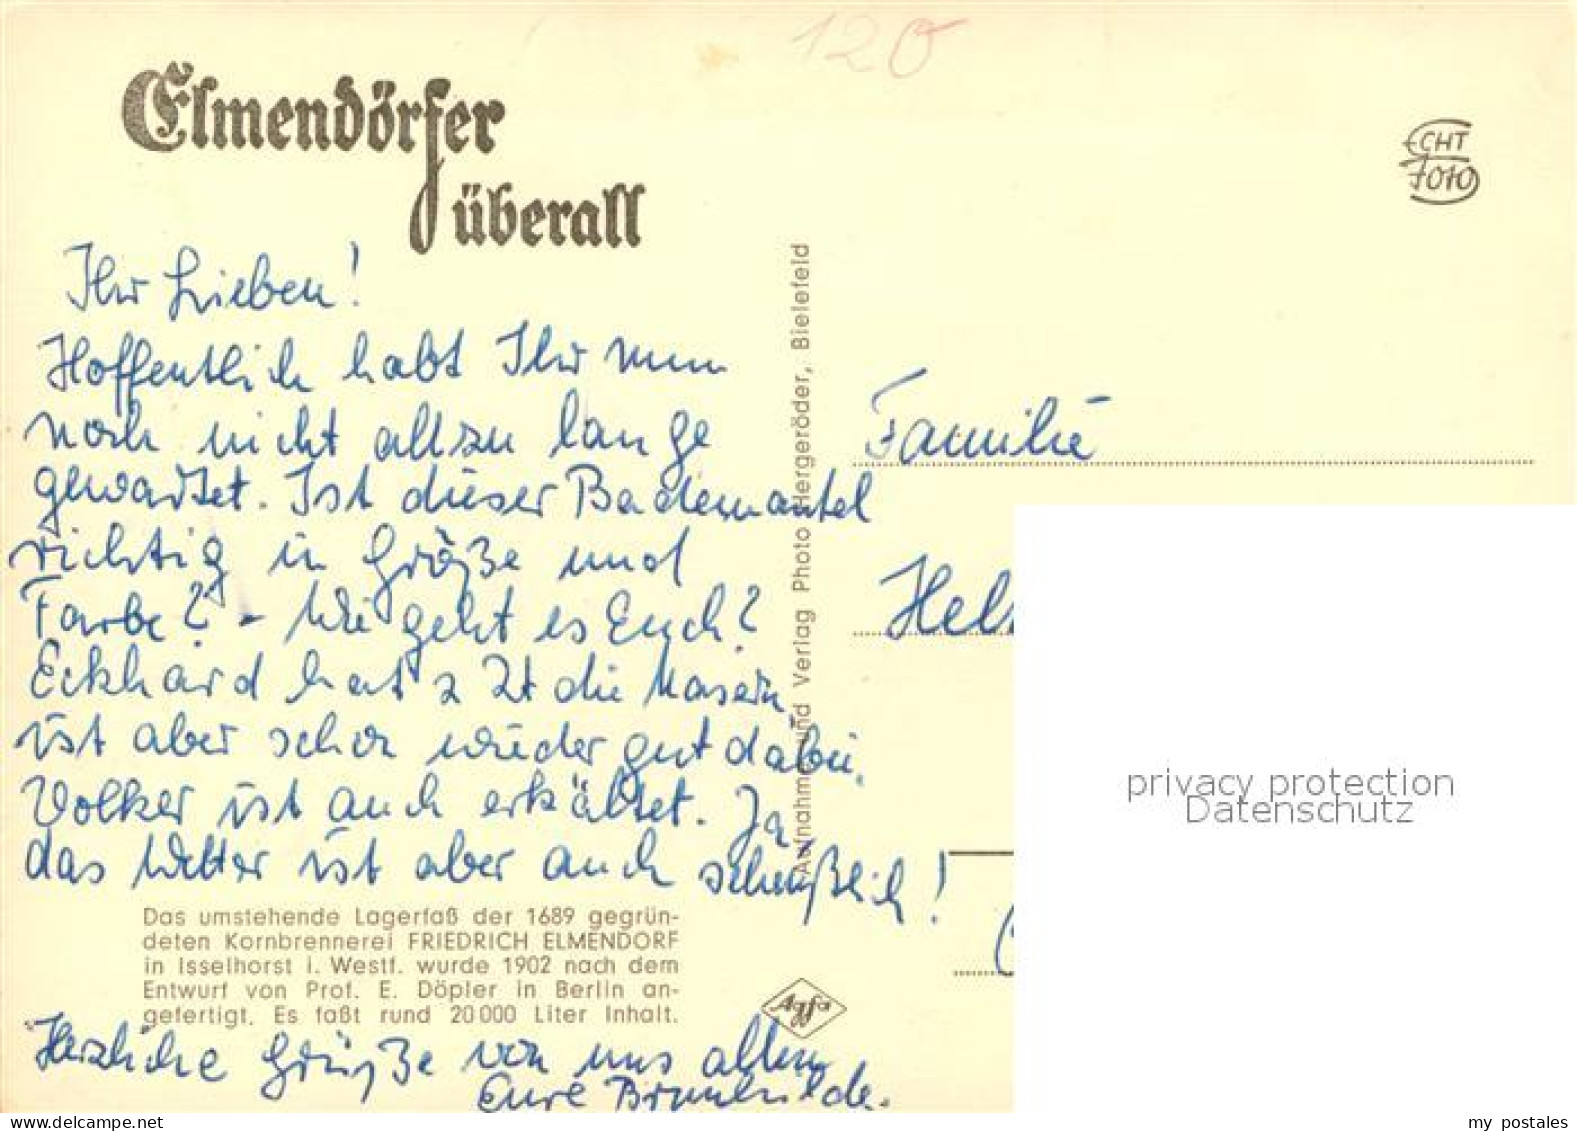 120
Elmendörfer
überall
ECHT
FOTO
Ihr Lieben!
Hoffentlich habt Ihr nun
noch nicht allzu lange
gewartet. Ist dieser Bademantel
richtig in Größe und
Farbe? - Wie geht es Euch?
Eckhard hat z Zt die Masern,
ist aber schon wieder gut dabei.
Volker ist auch erkältet. Ja,
das Wetter ist aber auch scheußlich!
Das umstehende Lagerfaß der 1689 gegrün-
deten Kornbrennerei FRIEDRICH ELMENDORF
in Isselhorst i. Westf. wurde 1902 nach dem
Entwurf von Prof. E. Döpler in Berlin an-
gefertigt. Es faßt rund 20000 Liter Inhalt.
Herzliche Grüße von uns allen
Eure Brunhilde.
Aufnahme und Verlag Photo Hergeröder, Bielefeld
Agfa
Familie
Hel
privacy protection
Datenschutz
my postales